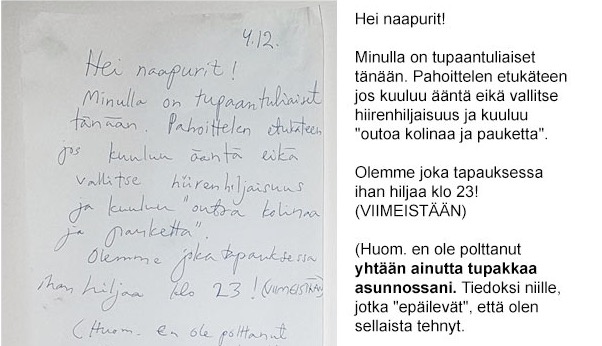 4.12.
Hei naapurit!
Minulla on tupaantuliaiset
tänään. Pahoittelen etukäteen
jos kuuluu ääntä eikä
vallitse hiirenhiljaisuus
ja kuuluu "outoa kolinaa
ja pauketta".
Olemme joka tapauksessa
ihan hiljaa klo 23! (VIIMEISTÄÄN)
(Huom. en ole polttanut
Hei naapurit!
Minulla on tupaantuliaiset
tänään. Pahoittelen etukäteen
jos kuuluu ääntä eikä vallitse
hiirenhiljaisuus ja kuuluu
"outoa kolinaa ja pauketta".
Olemme joka tapauksessa
ihan hiljaa klo 23!
(VIIMEISTÄÄN)
(Huom. en ole polttanut
yhtään ainutta tupakkaa
asunnossani. Tiedoksi niille,
jotka "epäilevät", että olen
sellaista tehnyt.